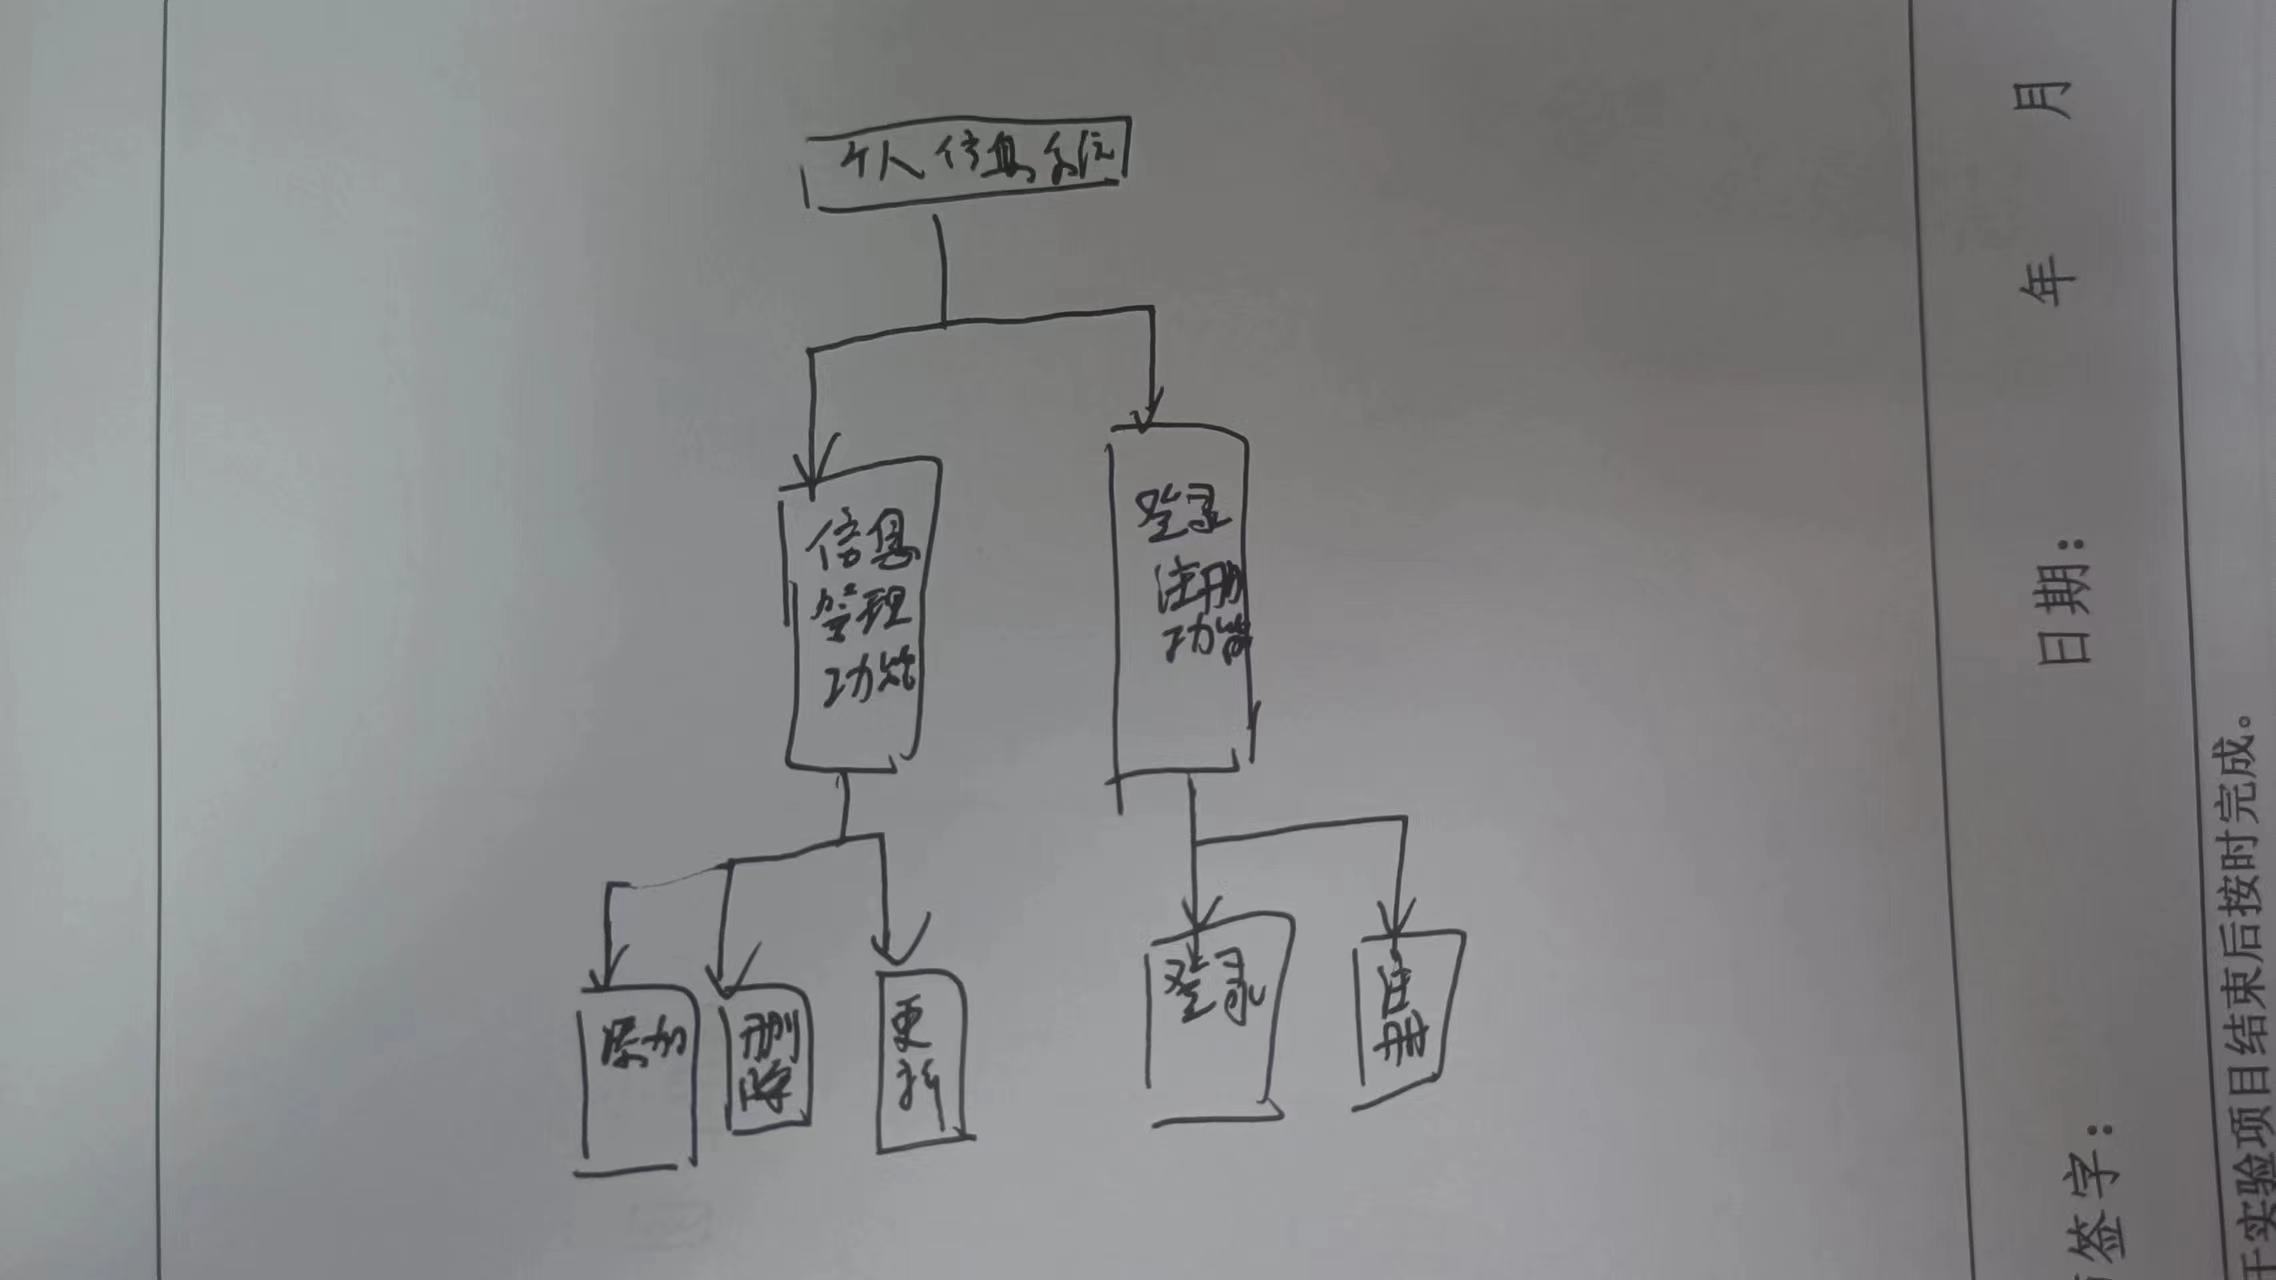 个人信息系统
信息
管理
功能
登录
注册
功能
添加
删
除
更
新
登录
注
册
签字：
日期：
年
月
实验项目结束后按时完成。